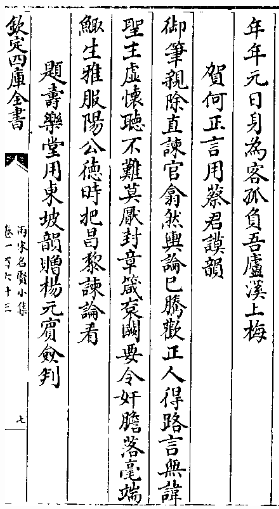 年年元日身為客孤負吾廬溪上梅
賀何正言用蔡君謨韻
御筆親除直諫官翕然輿論已騰歡正人得路言無諱
聖主虛懷聽不難莫厭封章箴衮闕要令奸膽落毫端
鯫生雅服陽公德時把昌黎諫論看
題壽樂堂用東坡韻贈楊元賓僉判
欽定四庫全書
兩宋名賢小集
卷一百六十三
七